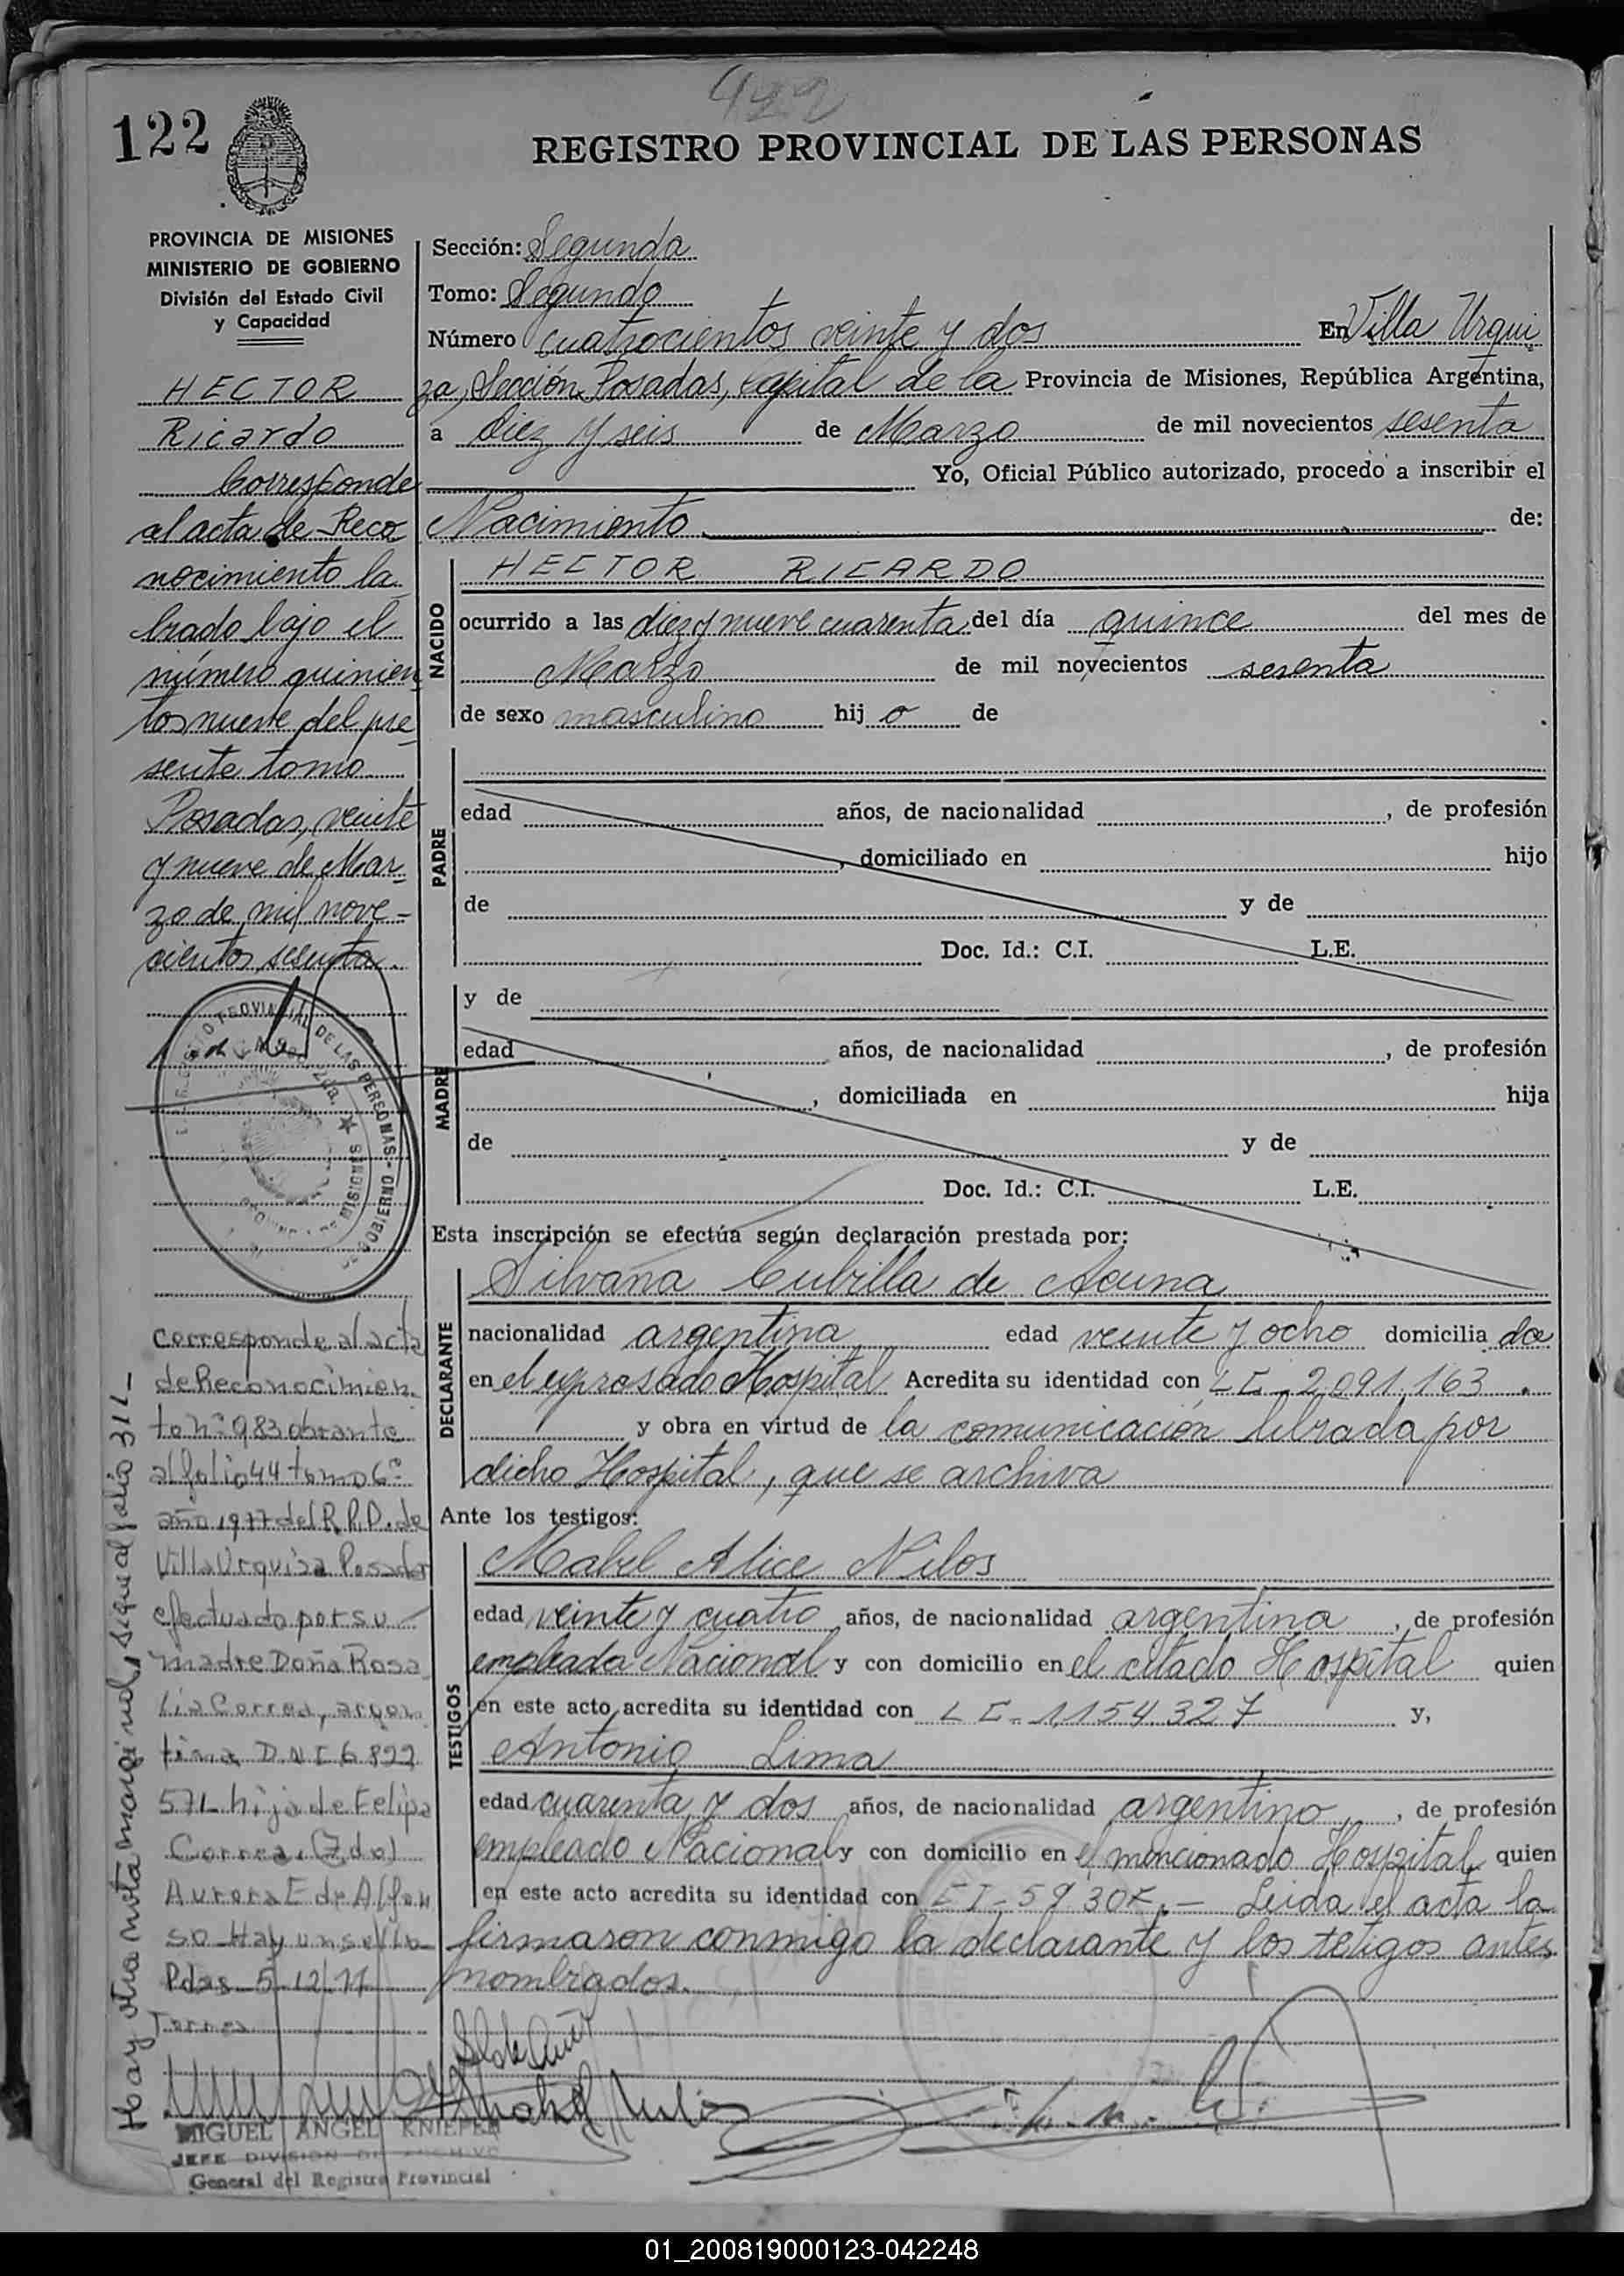 422
122
REGISTRO PROVINCIAL DE LAS PERSONAS
PROVINCIA DE MISIONES
MINISTERIO DE GOBIERNO
División del Estado Civil
y Capacidad
HECTOR
Ricardo
Corresponde
al acta de Reco
nocimiento la
brado bajo el
número quinien
tos nueve del pre
sente tomo
Posadas, veinte
y nueve de Mar
zo de mil nove-
cientos sesenta.
REGISTRO PROVINCIAL DE LAS PERSONAS
MISIONES
corresponde al acta
de Reconocimien
to nº 983 obrante
al folio 44 tomo 6º
año 1977 del R.P.D. de
Villa Urquiza Posadas
efectuado por su
madre Doña Rosa
lia Correa, argen
tina DNI 6 822
571 hija de Felipe
Correa (7do)
Aurora E de Alfon
so Hay un sello
Pdas 5/12/77
Torres
Hay otra nota marginal, sigue al folio 311-
MIGUEL ANGEL KNIEPER
JEFE DIVISION DE ARCHIVO
General del Registro Provincial
Sección: Segunda
Tomo: Segundo
Número cuatrocientos veinte y dos En Villa Urqui
za, Sección Posadas, Capital de la Provincia de Misiones, República Argentina,
a diez y seis de Marzo de mil novecientos sesenta
Yo, Oficial Público autorizado, procedo a inscribir el
Nacimiento de:
NACIDO
HECTOR RICARDO
ocurrido a las diez y nueve cuarenta del día quince del mes de
Marzo de mil novecientos sesenta
de sexo masculino hij o de
PADRE
edad años, de nacionalidad , de profesión
, domiciliado en hijo
de y de
Doc. Id.: C.I. L.E.
MADRE
y de
edad años, de nacionalidad , de profesión
, domiciliada en hija
de y de
Doc. Id.: C.I. L.E.
Esta inscripción se efectúa según declaración prestada por:
DECLARANTE
Silvana Cubilla de Acuna
nacionalidad argentina edad veinte y ocho domicilia da
en el expresado Hospital Acredita su identidad con LC-2.091.163.
y obra en virtud de la comunicación librada por
dicho Hospital, que se archiva
Ante los testigos:
TESTIGOS
Mabel Alice Nilos
edad veinte y cuatro años, de nacionalidad argentina, de profesión
empleada Nacional y con domicilio en el citado Hospital quien
en este acto acredita su identidad con LC-1.154.327 y,
Antonio Lima
edad cuarenta y dos años, de nacionalidad argentino, de profesión
empleado Nacional y con domicilio en el mencionado Hospital quien
en este acto acredita su identidad con Leida el acta la
firmaron conmigo la declarante y los tetigos antes
nombrados.
01_200819000123-042248